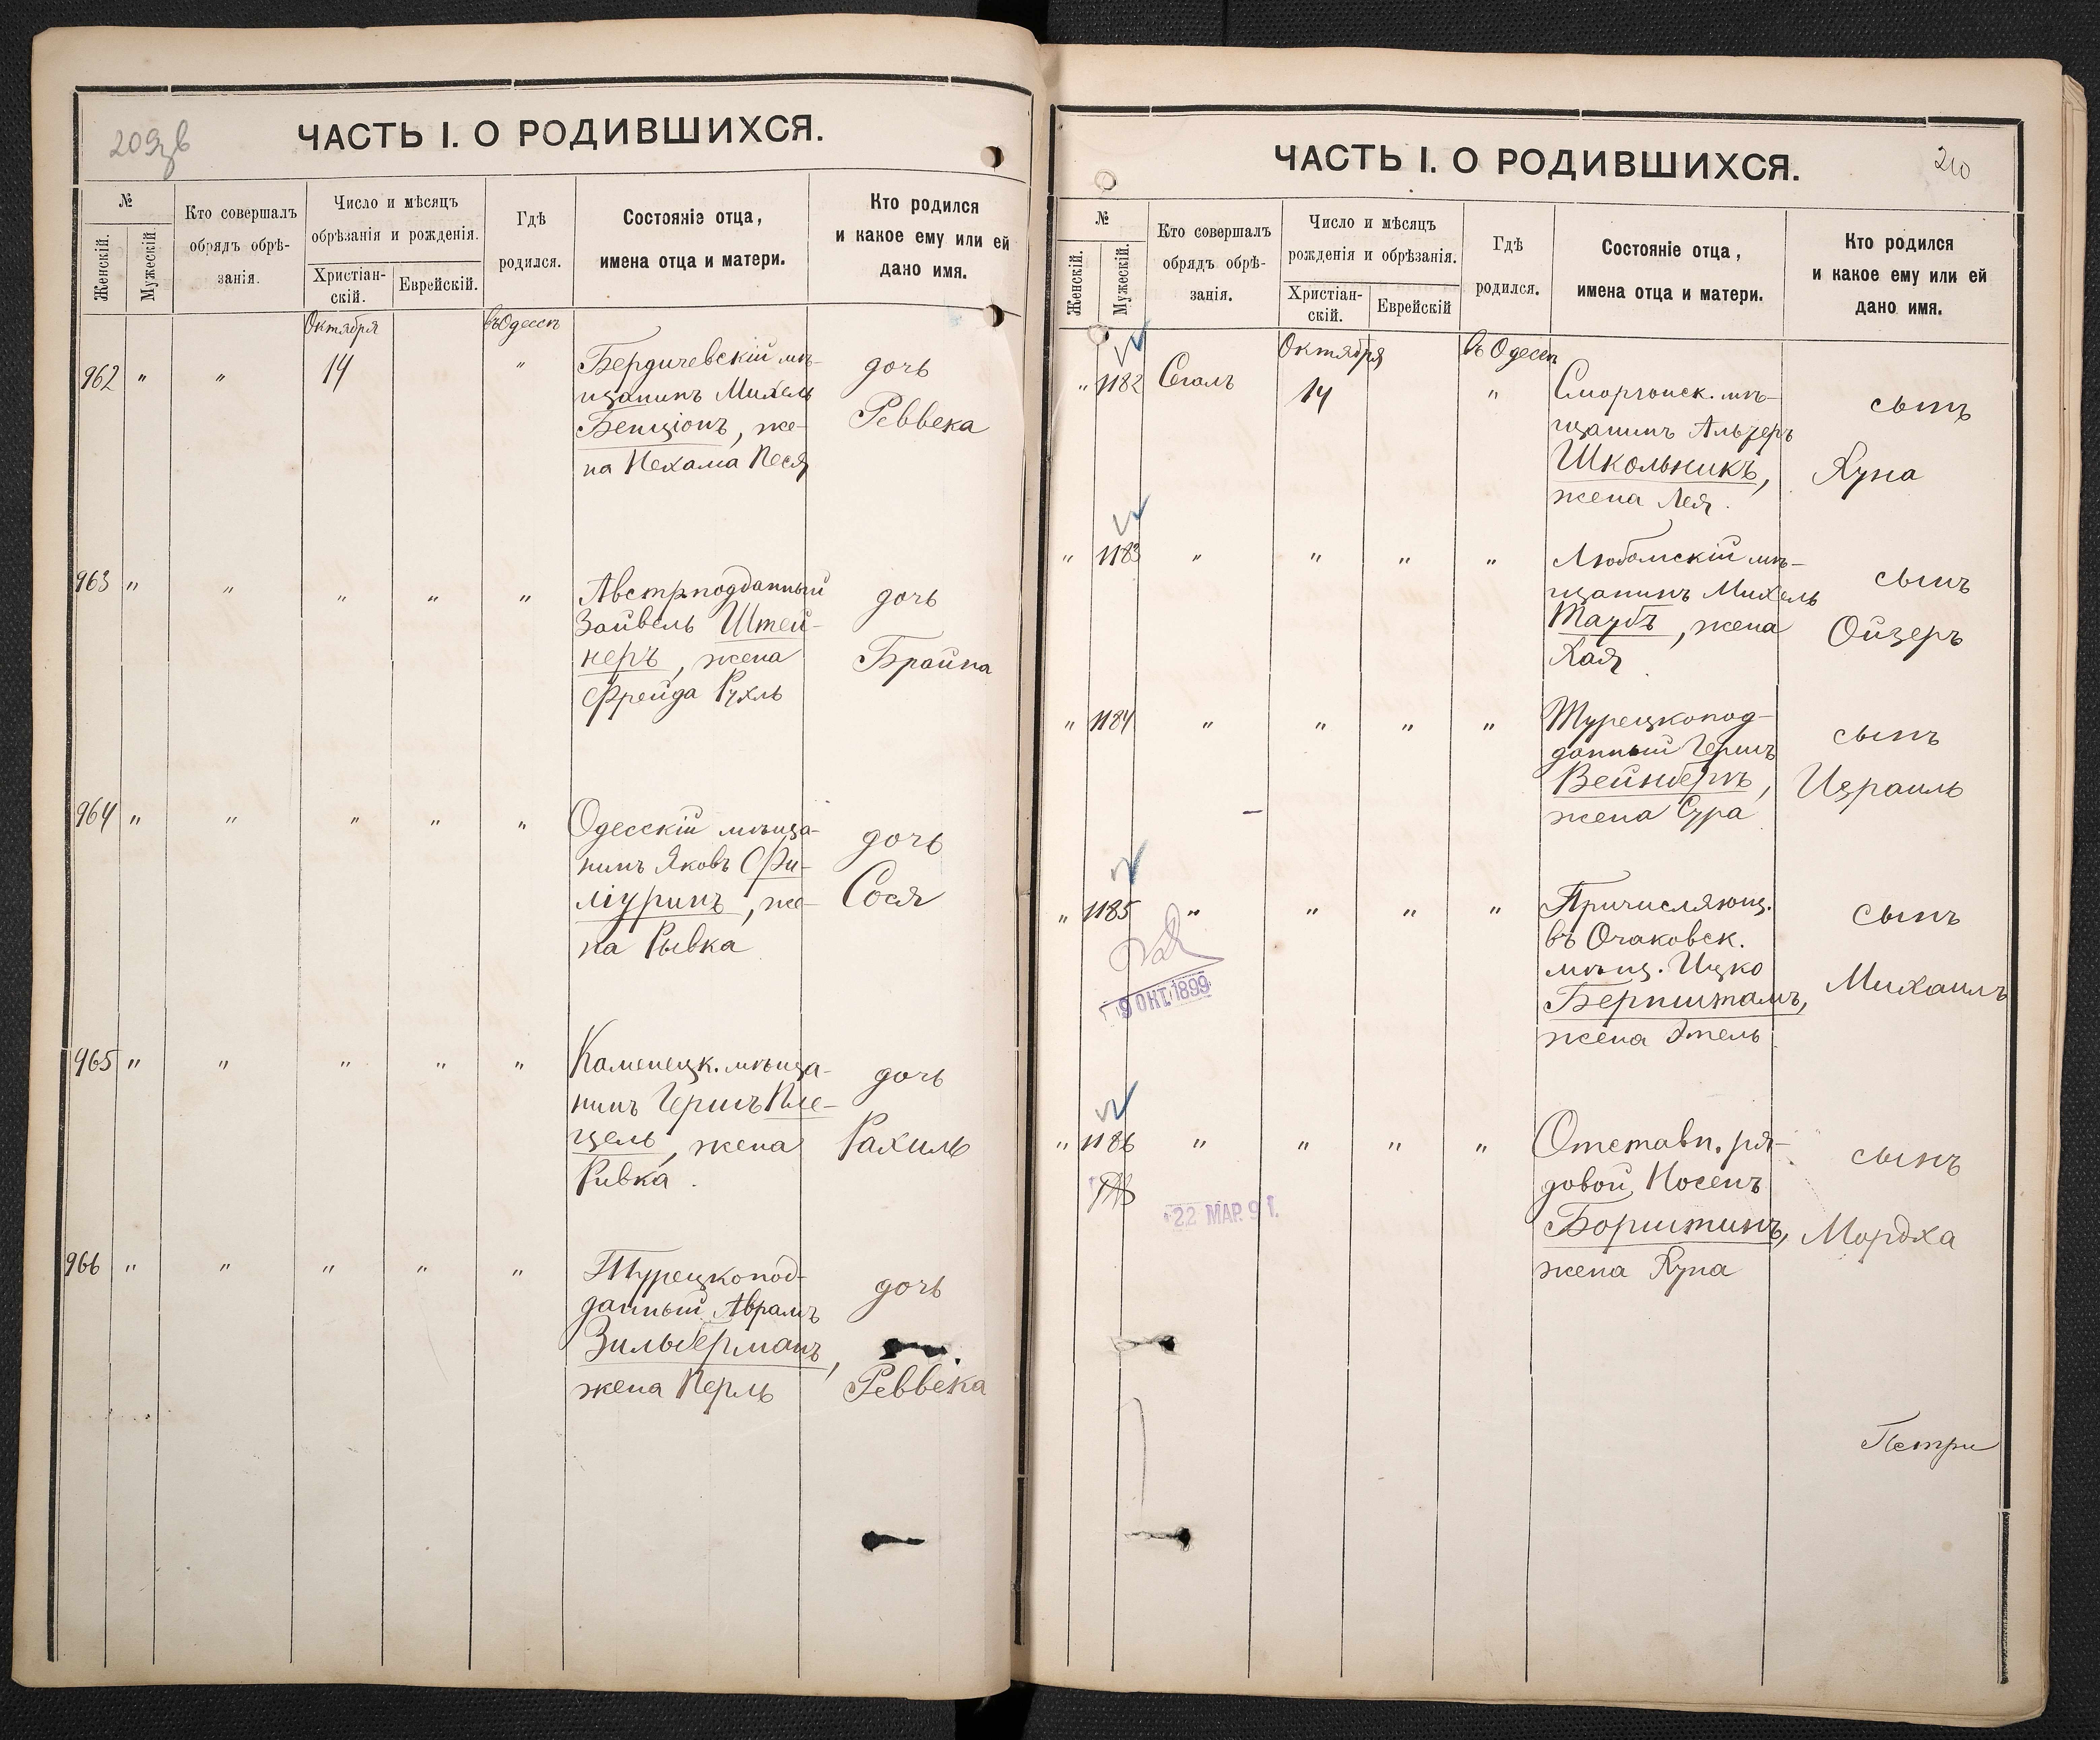 209зв
ЧАСТЬ I. О РОДИВШИХСЯ.
№
Женскій.
Мужескій
Кто совершалъ
обрядъ обрѣ-
занія.
Число и мѣсяцъ
обрѣзанія и рожденія.
Христіан-
скій.
Еврейскій.
Гдѣ
родился.
Состояніе отца,
имена отца и матери.
Кто родился
и какое ему или ей
дано имя.
Октября
въ Одессѣ
962 " " 14 "
Бердичевскій мѣ-
щанинъ Михель
Бенціонъ, же-
на Нехама Песя
дочь
Реввека
963 " " " " "
Австр. подданный
Зайвель Штей-
неръ, жена
Фрейда Рухль
дочь
Брайна
964 " " " " "
Одесскій мѣща-
нинъ Яковъ
, же-
на Рывка
дочь
Сося
965 " " " " "
Каменецк. мѣща-
нинъ Гершъ Пле-
цель, жена
Ривка.
дочь
Рахиль
966 " " " " "
Турецкопод-
данный Абрамъ
Зильберманъ,
жена Перль
дочь
Реввека
210
ЧАСТЬ I. О РОДИВШИХСЯ.
№
Женскій.
Мужескій.
Кто совершалъ
обрядъ обрѣ-
занія.
Число и мѣсяцъ
рожденія и обрѣзанія.
Христіан-
скій.
Еврейскій
Гдѣ
родился.
Состояніе отца,
имена отца и матери.
Кто родился
и какое ему или ей
дано имя.
Октября
въ Одессѣ
" 1182 Сегаль 14 "
Сморгонск. мѣ-
щанинъ Альтеръ
Школьникъ,
жена Лея.
сынъ
Хуна
" 1183 " " " "
Любомскій мѣ-
щанинъ Михель
Таубъ, жена
Хая
сынъ
Ойзеръ
" 1184 " " " "
Турецкопод-
данный Гершъ
Вейнбергъ,
жена Сура
сынъ
Израиль
" 1185 " " " "
Причисляющ.
въ Очаковск.
мѣщ. Ицко
Бернштамъ,
жена Этель
сынъ
Михаилъ
9 ОКТ. 1899
" 1186 " " " "
Отставн. ря-
довой Носенъ
Борштинъ,
жена Хуна
сынъ
Мордха
22 МАР. 91.